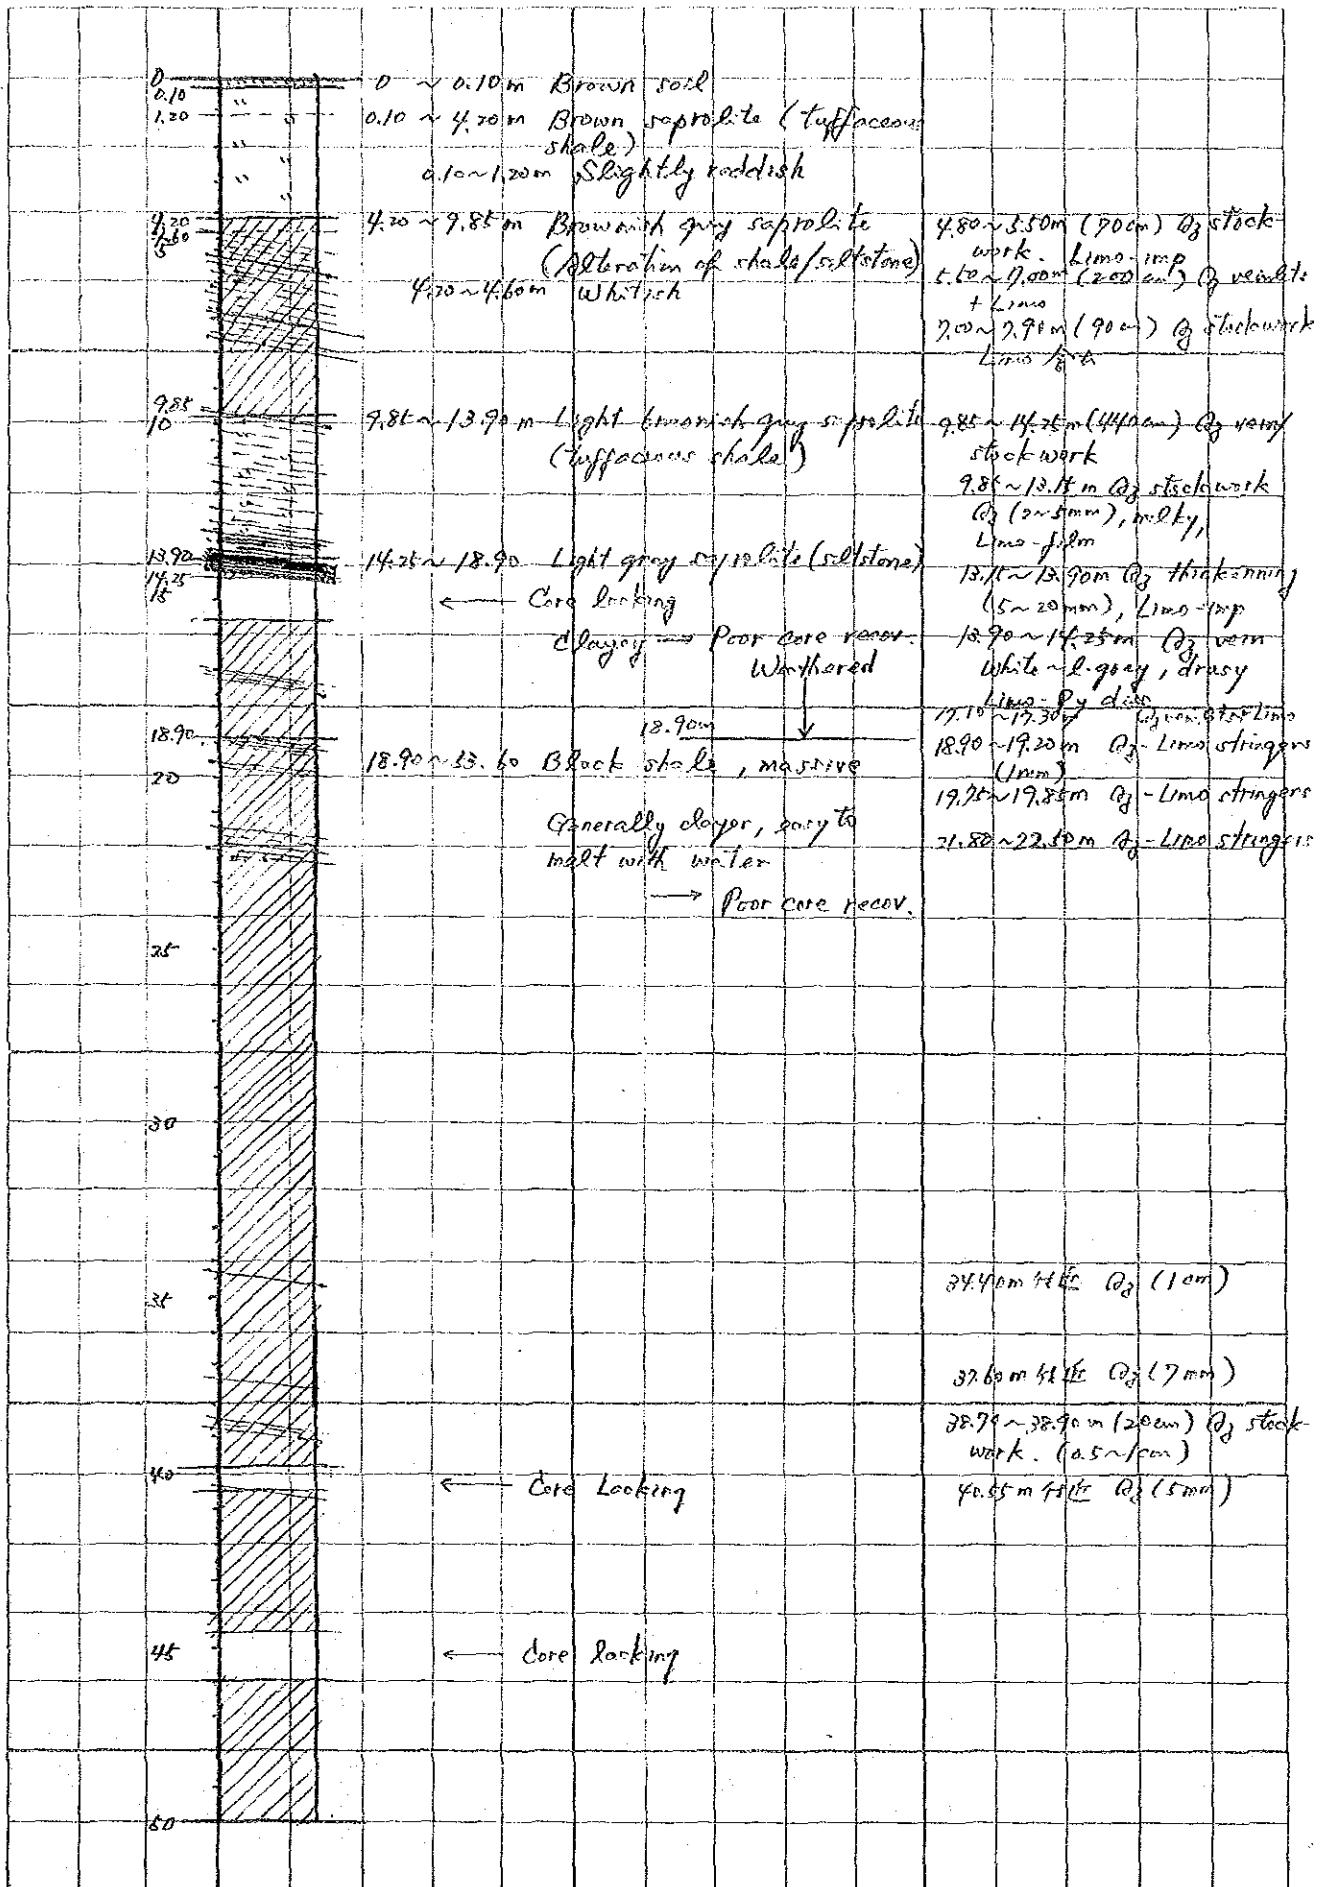 0
0.10
1.20
4.20
4.60
5
9.85
10
13.90
14.25
15
18.90
20
25
30
35
40
45
50
0 ~ 0.10 m Brown soil
0.10 ~ 4.20 m Brown saprolite (tuffaceous
shale)
0.10 ~ 1.20 m Slightly reddish
4.20 ~ 9.85 m Brownish gray saprolite
(Alteration of shale/siltstone)
4.20 ~ 4.60 m Whitish
9.85 ~ 13.90 m Light brownish gray saprolite
(tuffaceous shale)
14.25 ~ 18.90 Light gray saprolite (siltstone)
← Core lacking
Clayey → Poor core recov.
Weathered
18.90m
18.90 ~ 33.60 Black shale, massive
Generally clayer, easy to
melt with water
→ Poor core recov.
← Core Lacking
← Core lacking
4.80 ~ 5.50m (70cm) Qz stock-
work. Limo-imp
~ 7.00m (200 cm) Qz veinlets
+ Limo
7.00 ~ 7.90 m (90 cm) Qz stockwork
Limo
9.85 ~ 14.25 m (440 cm) Qz vein/
stockwork
9.85 ~ 13.15 m Qz stockwork
Qz (2~5mm), milky,
Limo-film
13.15 ~ 13.90m Qz thickenning
(5~20mm), Limo-imp
13.90 ~ 14.25m Qz vein
White ~ l.gray, drusy
Limo-Py diss
17.10 ~ 17.30m
18.90 ~ 19.20m Qz-Limo stringers
(1mm)
19.75 ~ 19.85m Qz-Limo stringers
21.80 ~ 22.50 m Qz-Limo stringers
34.40m 付近 Qz (1 cm)
37.60 m 付近 Qz (7 mm)
38.70 ~ 38.90 m (20cm) Qz stock-
work. (0.5~1cm)
40.55 m 付近 Qz (5mm)